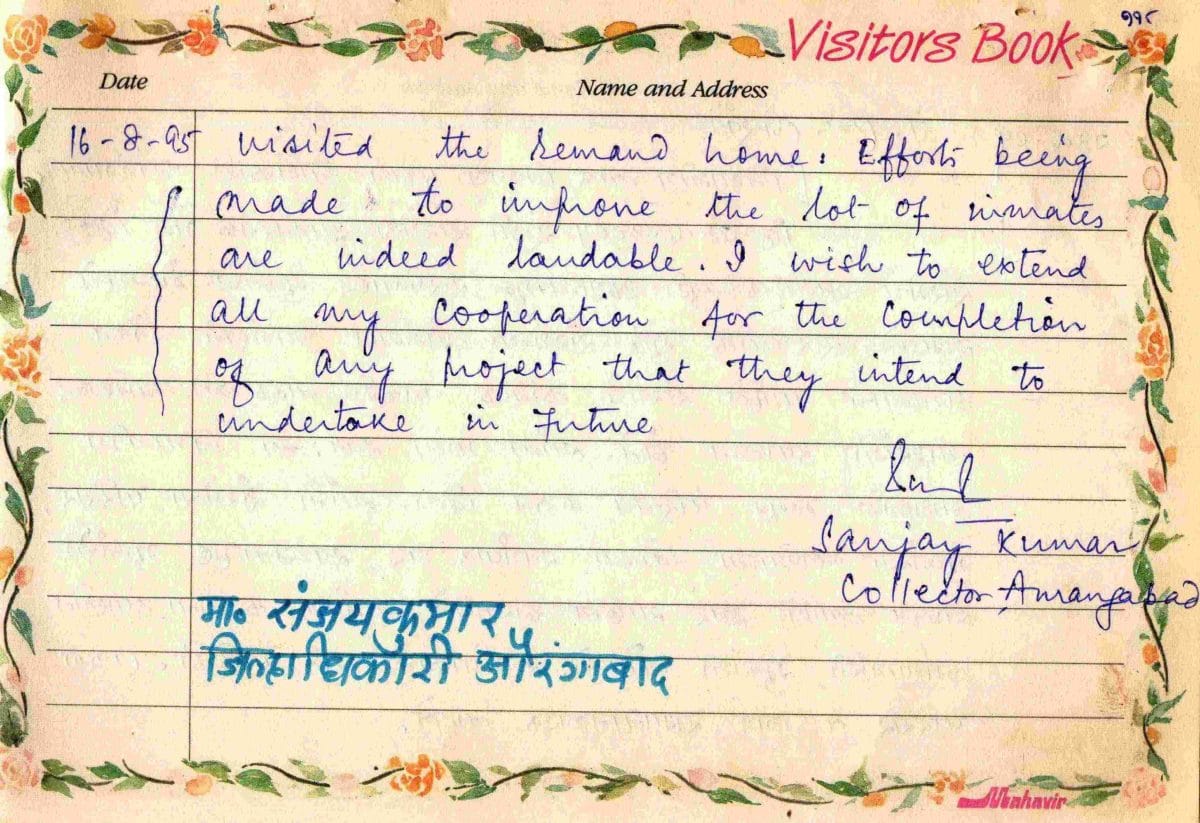 ११८
Visitors Book
Date Name and Address
16-8-95 visited the Remand home. Efforts being
made to improve the lot of inmates
are indeed laudable. I wish to extend
all my cooperation for the completion
of any project that they intend to
undertake in Future
Sanjay Kumar
Collector Aurangabad
मा. संजयकुमार,
जिल्हाधिकारी औरंगाबाद
Mahavir